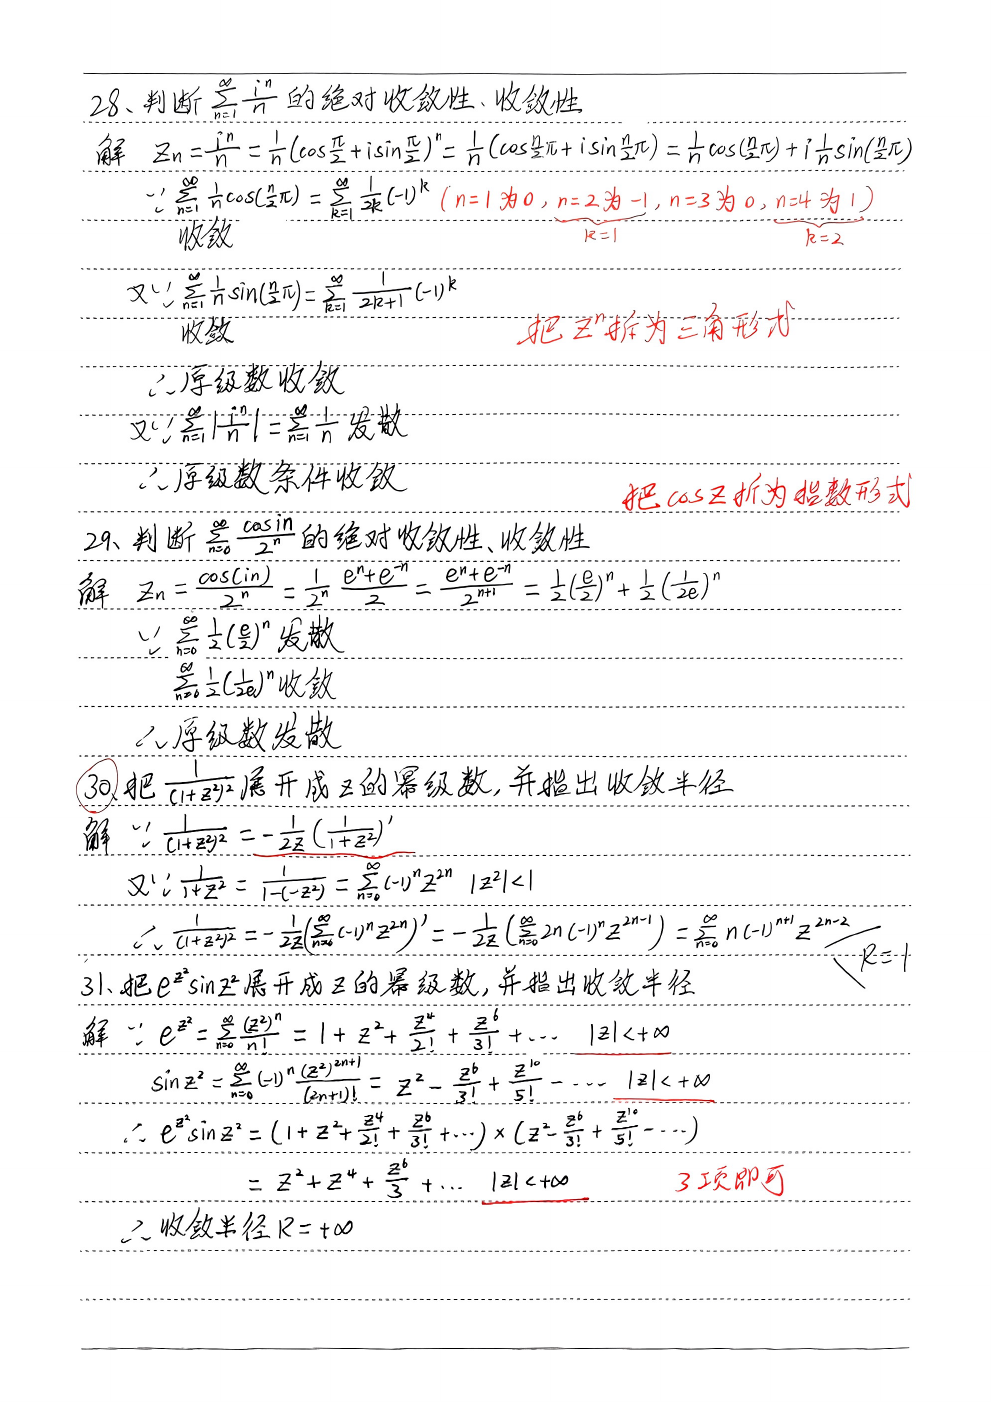 28、判断 $\sum_{n=1}^{\infty}\frac{i^n}{n}$ 的绝对收敛性、收敛性
解 $z_n=\frac{i^n}{n}=\frac{1}{n}(\cos\frac{\pi}{2}+i\sin\frac{\pi}{2})^n=\frac{1}{n}(\cos\frac{n}{2}\pi+i\sin\frac{n}{2}\pi)=\frac{1}{n}\cos(\frac{n}{2}\pi)+i\frac{1}{n}\sin(\frac{n}{2}\pi)$
∵ $\sum_{n=1}^{\infty}\frac{1}{n}\cos(\frac{n}{2}\pi)=\sum_{k=1}^{\infty}\frac{1}{2k}(-1)^k$ (n=1为0, n=2为-1, n=3为0, n=4为1)
k=1 k=2
收敛
又∵ $\sum_{n=1}^{\infty}\frac{1}{n}\sin(\frac{n}{2}\pi)=\sum_{k=1}^{\infty}\frac{1}{2k+1}(-1)^k$
收敛 把 $z^n$ 拆为三角形式
∴原级数收敛
又∵ $\sum_{n=1}^{\infty}|\frac{i^n}{n}|=\sum_{n=1}^{\infty}\frac{1}{n}$ 发散
∴原级数条件收敛
把cosz折为指数形式
29、判断 $\sum_{n=0}^{\infty}\frac{\cos in}{2^n}$ 的绝对收敛性、收敛性
解 $z_n=\frac{\cos(in)}{2^n}=\frac{1}{2^n}\frac{e^n+e^{-n}}{2}=\frac{e^n+e^{-n}}{2^{n+1}}=\frac{1}{2}(\frac{e}{2})^n+\frac{1}{2}(\frac{1}{2e})^n$
∵ $\sum_{n=0}^{\infty}\frac{1}{2}(\frac{e}{2})^n$ 发散
$\sum_{n=0}^{\infty}\frac{1}{2}(\frac{1}{2e})^n$ 收敛
∴原级数发散
30、把 $\frac{1}{(1+z^2)^2}$ 展开成z的幂级数,并指出收敛半径
解 ∵ $\frac{1}{(1+z^2)^2}=-\frac{1}{2z}(\frac{1}{1+z^2})'$
又∵ $\frac{1}{1+z^2}=\frac{1}{1-(-z^2)}=\sum_{n=0}^{\infty}(-1)^n z^{2n}$ $|z^2|<1$
∴ $\frac{1}{(1+z^2)^2}=-\frac{1}{2z}(\sum_{n=0}^{\infty}(-1)^n z^{2n})'=-\frac{1}{2z}(\sum_{n=0}^{\infty}2n(-1)^n z^{2n-1})=\sum_{n=0}^{\infty}n(-1)^{n+1}z^{2n-2}$
R=1
31、把 $e^{z^2}\sin z^2$ 展开成z的幂级数,并指出收敛半径
解 ∵ $e^{z^2}=\sum_{n=0}^{\infty}\frac{(z^2)^n}{n!}=1+z^2+\frac{z^4}{2!}+\frac{z^6}{3!}+\cdots$ $|z|<+\infty$
$\sin z^2=\sum_{n=0}^{\infty}(-1)^n\frac{(z^2)^{2n+1}}{(2n+1)!}=z^2-\frac{z^6}{3!}+\frac{z^{10}}{5!}-\cdots$ $|z|<+\infty$
∴ $e^{z^2}\sin z^2=(1+z^2+\frac{z^4}{2!}+\frac{z^6}{3!}+\cdots)\times(z^2-\frac{z^6}{3!}+\frac{z^{10}}{5!}-\cdots)$
$=z^2+z^4+\frac{z^6}{3}+\cdots$ $|z|<+\infty$ 3项即可
∴收敛半径R=+∞